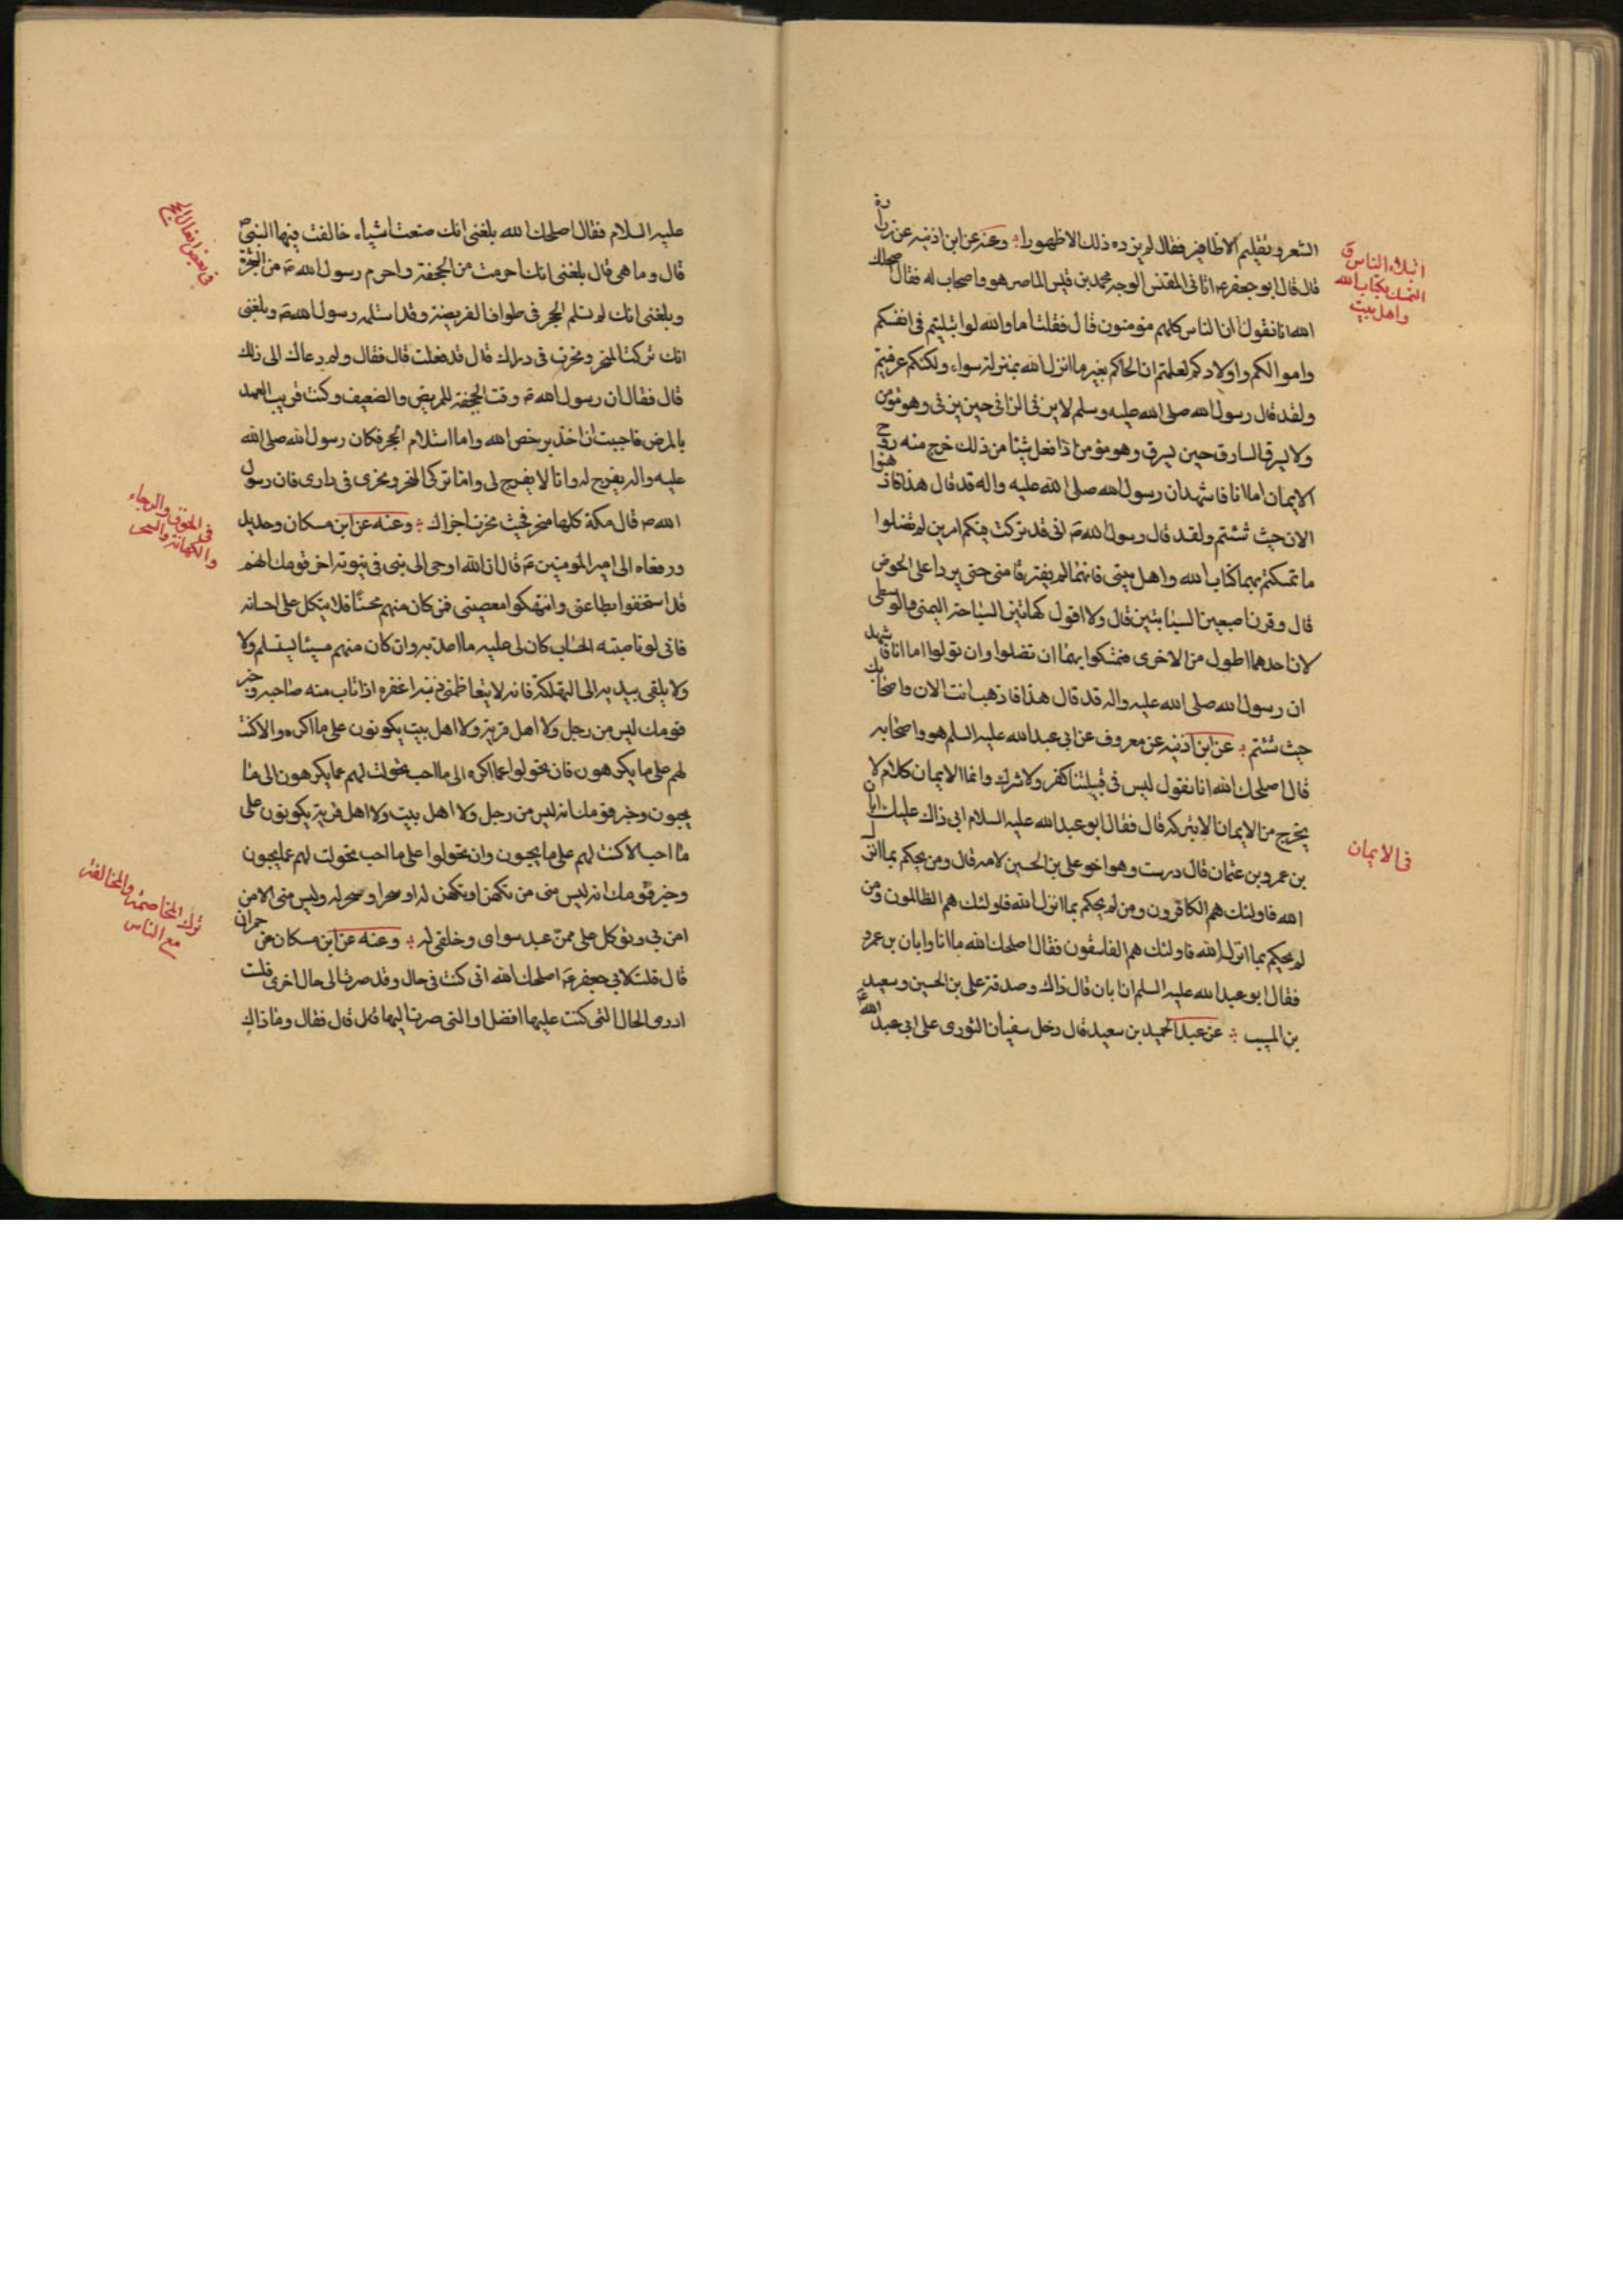 الشعر وتقليم الاظافير فقال لم يزده ذلك الا ظهورا وعنه عن ابن اذنيه عن زرارة
قال قال ابو جعفر ع اتانى المقبس الوجه محمد بن قيس الماصر هو واصحاب له فقال اصلحك
الله انا نقول ان الناس كلهم مؤمنون قال فقلت اما والله لو ابتليتم فى انفسكم
واموالكم واولادكم لعلمتم ان الحاكم بغير ما انزل الله بمنزلة سواء ولكنكم عوفيتم
ولقد قال رسول الله صلى الله عليه وسلم لا يزنى الزانى حين يزنى وهو مؤمن
ولا يسرق السارق حين يسرق وهو مؤمن اذا فعل شيئا من ذلك خرج منه روح
الايمان اما انا فاشهد ان رسول الله صلى الله عليه واله قد قال هذا فاذهبوا
الان حيث شئتم ولقد قال رسول الله ص انى قد تركت فيكم امرين لم تضلوا
ما تمسكتم بهما كتاب الله واهل بيتى فانهما لم يفترقا منى حتى يردا على الحوض
قال وقرن اصبعين السبابتين قال ولا اقول كهاتين السباحة اليمنى والوسطى
لان احدهما اطول من الاخرى فتمسكوا بهما ان تضلوا وان تولوا اما انا فاشهد
ان رسول الله صلى الله عليه واله قد قال هذا فاذهب انت الان واصحابك
حيث شئتم عن ابن اذنيه عن معروف عن ابى عبد الله عليه السلم هو واصحابه
قال اصلحك الله انا نقول ليس فى قبيلتنا كفر ولا شرك وانما الايمان كلام لا
يخرج من الايمان الا بتركه قال فقال ابو عبد الله عليه السلام ابى ذاك عليك ابان
بن عمرو بن عثمان قال درست وهو اخو على بن الحسين لامه قال ومن يحكم بما انزل
الله فاولئك هم الكافرون ومن لم يحكم بما انزل الله فاولئك هم الظالمون ومن
لم يحكم بما انزل الله فاولئك هم الفاسقون فقال اصلحك الله ما انا وابان بن عمرو
فقال ابو عبد الله عليه السلم ان ابان قال ذاك وصدقه على بن الحسين وسعيد
بن المسيب عن عبد الحميد بن سعيد قال دخل سفيان الثورى على ابى عبد الله
ابتلاء الناس
التمسك بكتاب الله
واهل بيت
فى الايمان
عليه السلام فقال اصلحك الله بلغنى انك صنعت اشياء خالفت فيها النبى ص
قال وما هى قال بلغنى انك احرمت من الجحفة واحرم رسول الله ص من الشجرة
وبلغنى انك لم تستلم الحجر فى طواف الفريضة وقد استلمه رسول الله ص وبلغنى
انك تركت المنحر ونحرت فى دارك قال قد فعلت قال فقال وما دعاك الى ذلك
قال فقال ان رسول الله ص وقت الجحفة للمريض والضعيف وكنت قريب العهد
بالمرض فاحببت ان اخذ برخص الله واما استلام الحجر فكان رسول الله صلى الله
عليه واله يفرج له وانا لا يفرج لى واما تركى المنحر ونحرى فى دارى فان رسول
الله ص قال مكة كلها منحر فحيث نحرت اجزاك وعنه عن ابن مسكان وحديد
ورفعاه الى امير المؤمنين ع قال ان الله اوحى الى نبى فى نبوته اخبر قومك انهم
قد استخفوا بطاعتى وانتهكوا معصيتى فمن كان منهم محسنا فلا يتكل على احسانه
فانى لو ناصبته الحساب كان لى عليه ما اعذبه وان كان منهم مسيئا يستسلم ولا
ولا يلقى بيديه الى التهلكة فانه لا يتعاظمنى ذنب اغفره اذا تاب منه صاحبه وخبر
قومك ليس من رجل ولا اهل قرية ولا اهل بيت يكونون على ما اكره والا كنت
لهم على ما يكرهون فان تحولوا عما اكره الى ما احب تحولت لهم عما يكرهون الى ما
يحبون وخبر قومك انه ليس من رجل ولا اهل بيت ولا اهل قرية يكونون على
ما احب الا كنت لهم على ما يحبون وان تحولوا على ما احب تحولت لهم عما يحبون
وخبر قومك انه ليس منى من تكهن او تكهن له او سحر او سحر له وليس منى الا من
امن بى وتوكل على ممن عبد سواى وخلقى له وعنه عن ابن مسكان عن حمران
قال قلت لابى جعفر ع اصلحك الله انى كنت فى حال وقد صرت الى حال اخرى فلست
ادرى الحال التى كنت عليها افضل او التى صرت اليها قال قال فقال وما ذاك
فى بعض افعال الحج
فى الخوف والرجاء
والكهانة والسحر
ترك المخاصمة والمخالفة
مع الناس